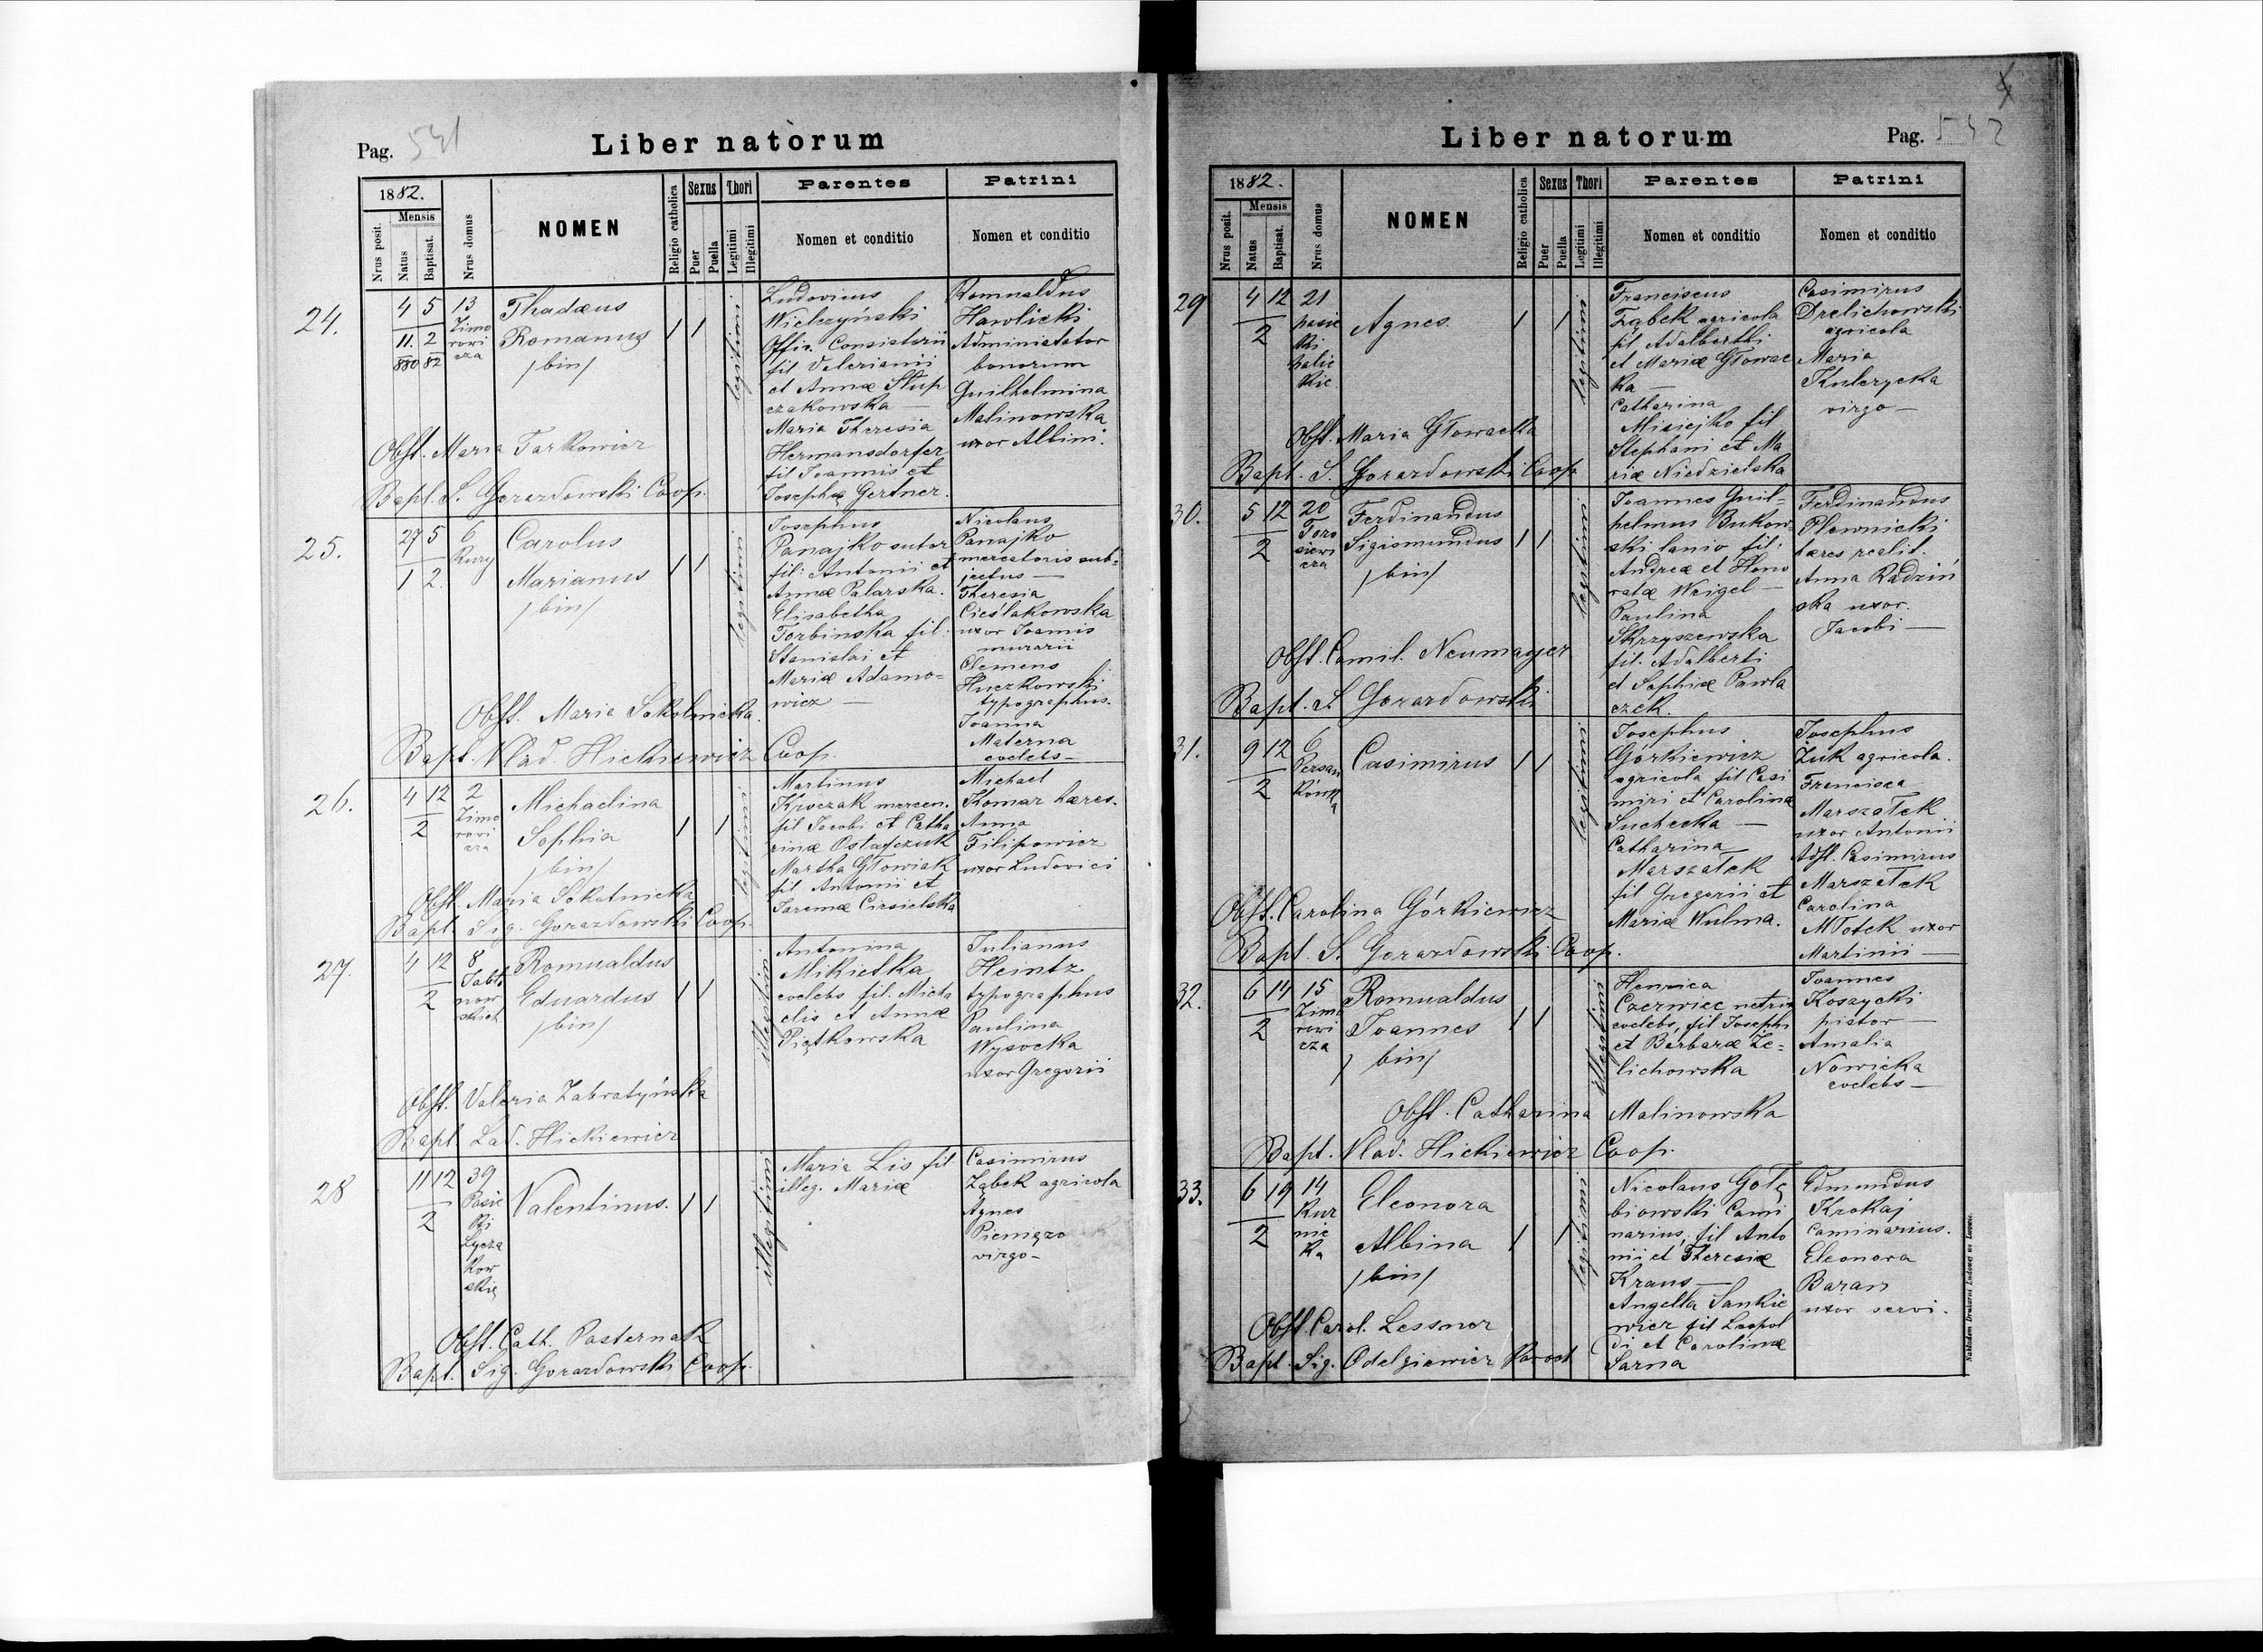 Pag. 531
Liber natorum
1882.
Mensis
Nrus posit.
Natus
Baptisat.
Nrus domus
NOMEN
Religio catholica
Sexus
Puer
Puella
Thori
Legitimi
Illegitimi
Parentes
Nomen et conditio
Patrini
Nomen et conditio
24.
4 5 13
11. 2
880 82
Zimo
rowi
cza
Thadæus
Romanus
/bin/
1 1
legitimi
Ludovicus
Wielczyński
Offic. Consistorii
fil Valerianii
et Annæ Słup
czakowska —
Maria Theresia
Hermansdorfer
fil Joannis et
Josephæ Gertner.
Romualdus
Hawlicki
Administator
bonorum
Guilhelmina
Malinowska
uxor Albini.
Obst. Maria Tarkowicz
Bapt. S. Gorazdowski Coop.
25.
27 5 6
1 2.
Kury
Carolus
Marianus
/bin/
1 1
legitimi
Josephus
Panajko sutor
fil: Antonii et
Annæ Palarska.
Elisabetha
Torbinska fil.
Stanislai et
Mariæ Adamo=
wicz —
Nicolaus
Panajko
mercatoris sub=
jectus —
Theresia
Cieślakowska
uxor Joannis
murarii
Clemens
Huczkowski
typographus.
Joanna
Materna
coelebs —
Obst. Maria Sokolnicka.
Bapt. Vlad. Hickiewicz Coop.
26.
4 12 2
2
Zimo
rowi
cza
Michaëlina
Sophia
/bin/
1 1
legitimi
Martinus
Krzczak mercen.
fil Jacobi et Catha
rinæ Ostapczuk
Martha Głowiak
fil Antonii et
Jaremæ Ciesielska
Michael
Komar hæres.
Anna
Filipowicz
uxor Ludovici
Obst. Maria Sokolnicka
Bapt. Sig. Gorazdowski Coop.
27.
4 12 8
2
Jabło
now
skich
Romualdus
Eduardus
/bin/
1 1
illegitimi
Antonina
Mikietka
coelebs fil. Micha
elis et Annæ
Piątkowska
Julianus
Heintz
typographus
Paulina
Wysocka
uxor Gregorii
Obst. Valeria Zabratyńska
Bapt. Lad. Hickiewicz
28
11 12 39
2
Pasie
ki
Łycza
kow
skie
Valentinus.
1 1
illegitimi
Maria Lis fil
illeg. Mariæ
Casimirus
Ząbek agricola
Agnes
Pieniązo
virgo —
Obst. Cath. Pasternak
Bapt. Sig. Gorazdowski Coop.
Liber natorum
Pag. 532
1882.
Mensis
Nrus posit.
Natus
Baptisat.
Nrus domus
NOMEN
Religio catholica
Sexus
Puer
Puella
Thori
Legitimi
Illegitimi
Parentes
Nomen et conditio
Patrini
Nomen et conditio
29
4 12 21
2
pasie
ki
halic
kie
Agnes.
1 1
legitimi
Franciscus
Ząbek agricola
fil Adalberthi
et Mariæ Głowac
ka —
Catharina
Misiejko fil
Stephani et Ma
riæ Niedzielska
Casimirus
Drelichowski
agricola
Maria
Kulczycka
virgo —
Obst. Maria Głowacka
Bapt. S. Gorazdowski Coop
30.
5 12 20
2
Toro
siewi
cza
Ferdinandus
Sigismundus
/bin/
1 1
legitimi
Joannes Guil=
helmus Bukow
ski lanio fil:
Andreæ et Hono
ratæ Weigel —
Paulina
Skrzyszewska
fil. Adalberti
et Sophiæ Pawla
czek.
Ferdinandus
Plewnicki
hæres realit.
Anna Radziń
ska uxor.
Jacobi —
Obst. Camil. Neumayer
Bapt. S. Gorazdowski
31.
9 12 6
2
Persan
kówk
a
Casimirus
1 1
legitimi
Josephus
Górkiewicz
agricola fil Casi
miri et Carolina
Suchecka —
Catharina
Marszałek
fil Gregorii et
Mariæ Wulma.
Josephus
Żuk agricola.
Francisca
Marszałek
uxor Antonii
Adst. Casimirus
Marszałek
Carolina
Młotek uxor
Martinii —
Obst. Carolina Górkiewicz
Bapt. S. Gorazdowski Coop.
32.
6 14 15
2
Zimo
rowi
cza
Romualdus
Joannes
/bin/
1 1
illegitimi
Henrica
Czerwiec netrix
coelebs, fil Josephi
et Barbaræ Że=
lichowska
Joannes
Koszycki
pistor —
Amalia
Nowicka
coelebs —
Obst. Catharina Malinowska
Bapt. Vlad. Hickiewicz Coop.
33.
6 19 14
2
Kur
nic
ka
Eleonora
Albina
/bin/
1 1
legitimi
Nicolaus Gołę
biowski Cami
narius, fil Anto
nii et Theresiæ
Kraus —
Angella Sankie
wicz fil Leopol
di et Carolinæ
Sarna
Edmundus
Krokaj
Caminarius.
Eleonora
Baran
uxor servi.
Obst. Carol. Lessner
Bapt. Sig. Odelgiewicz Paroch
Nakładem Drukarni Ludowej we Lwowie.